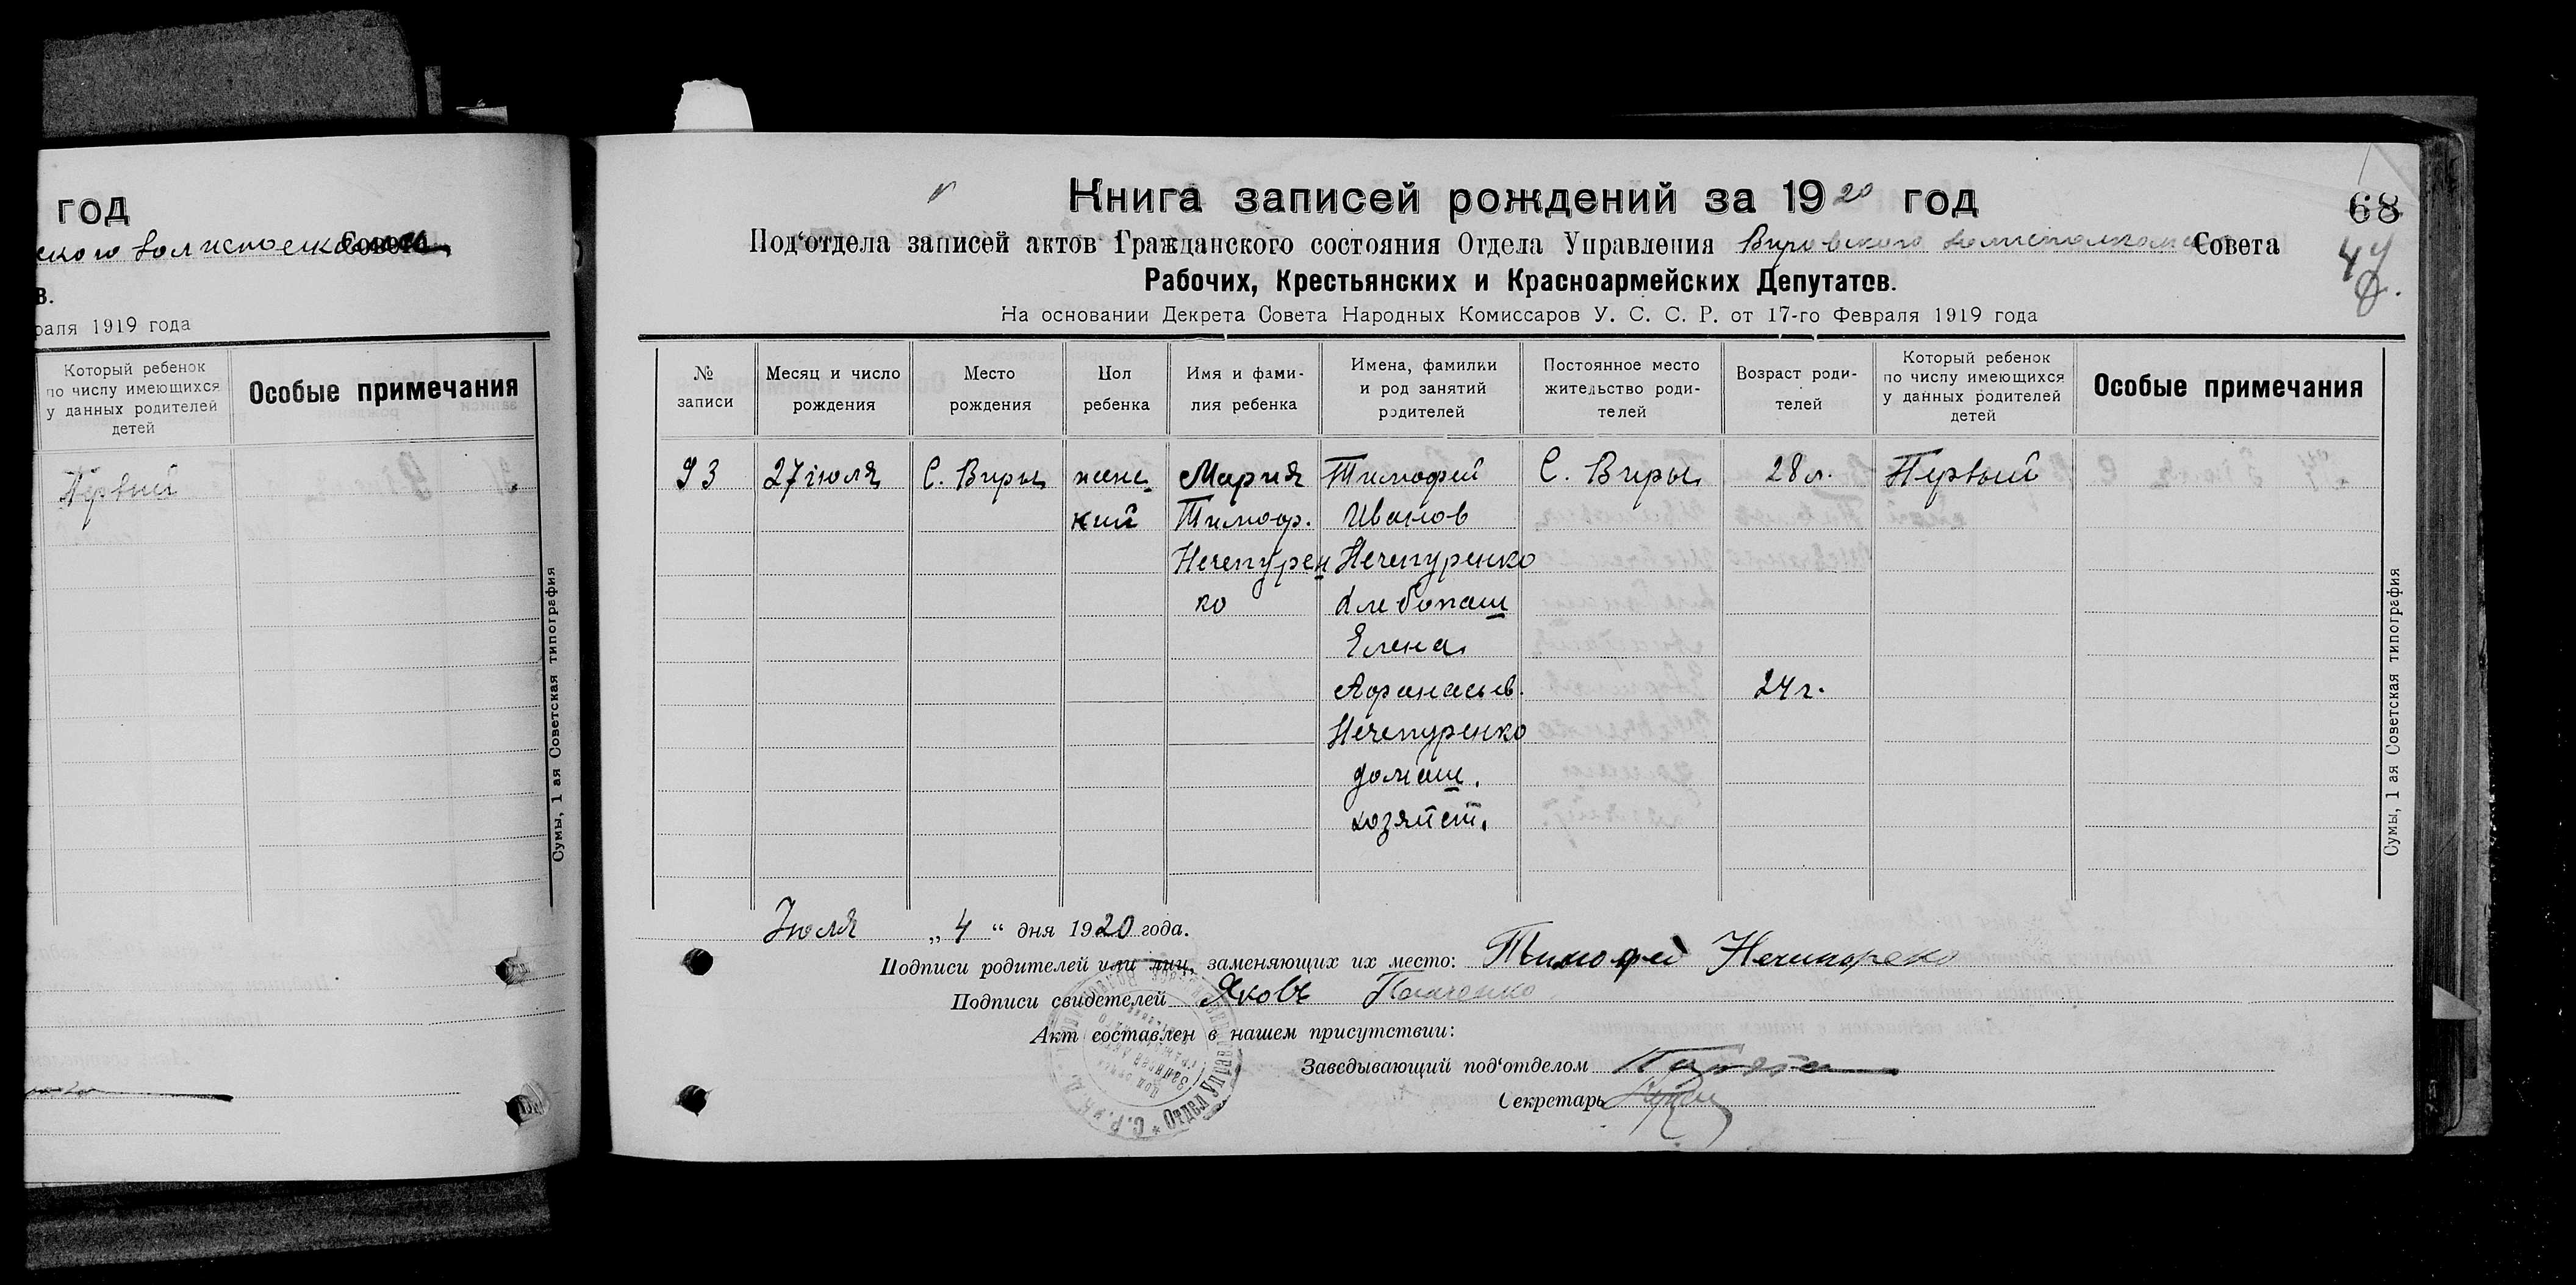 год
ского волисполкома Совета
в.
раля 1919 года
Который ребенок
по числу имеющихся
у данных родителей
детей
Особые примечания
Первый
Сумы, 1 ая Советская типография
Книга записей рождений за 1920 год
68
Под‘отдела записей актов Гражданского состояния Отдела Управления Вировского волисполкома Совета
Рабочих, Крестьянских и Красноармейских Депутатов.
На основании Декрета Совета Народных Комиссаров У. С. С. Р. от 17-го Февраля 1919 года
№
записи
Месяц и число
рождения
Место
рождения
Пол
ребенка
Имя и фами-
лия ребенка
Имена, фамилии
и род занятий
родителей
Постоянное место
жительство роди-
телей
Возраст роди-
телей
Который ребенок
по числу имеющихся
у данных родителей
детей
Особые примечания
93 27 июля С. Виры женс Мария Тимофей С. Виры 28 л. Первый
кий Тимоф. Иванов
Нечепурен Нечепуренко
ко хлебопаш
Елена
Афанасьев. 24 г.
Нечепуренко
домаш.
хозяйст.
Июля „ 4 “ дня 1920 года.
Подписи родителей или лиц, заменяющих их место: Тимофей
Подписи свидетелей Яковъ
Акт составлен в нашем присутствии:
Заведывающий под‘отделом
Секретарь
Отдел Управления
С.Р. и К.Д.
Сумы, 1 ая Советская типография